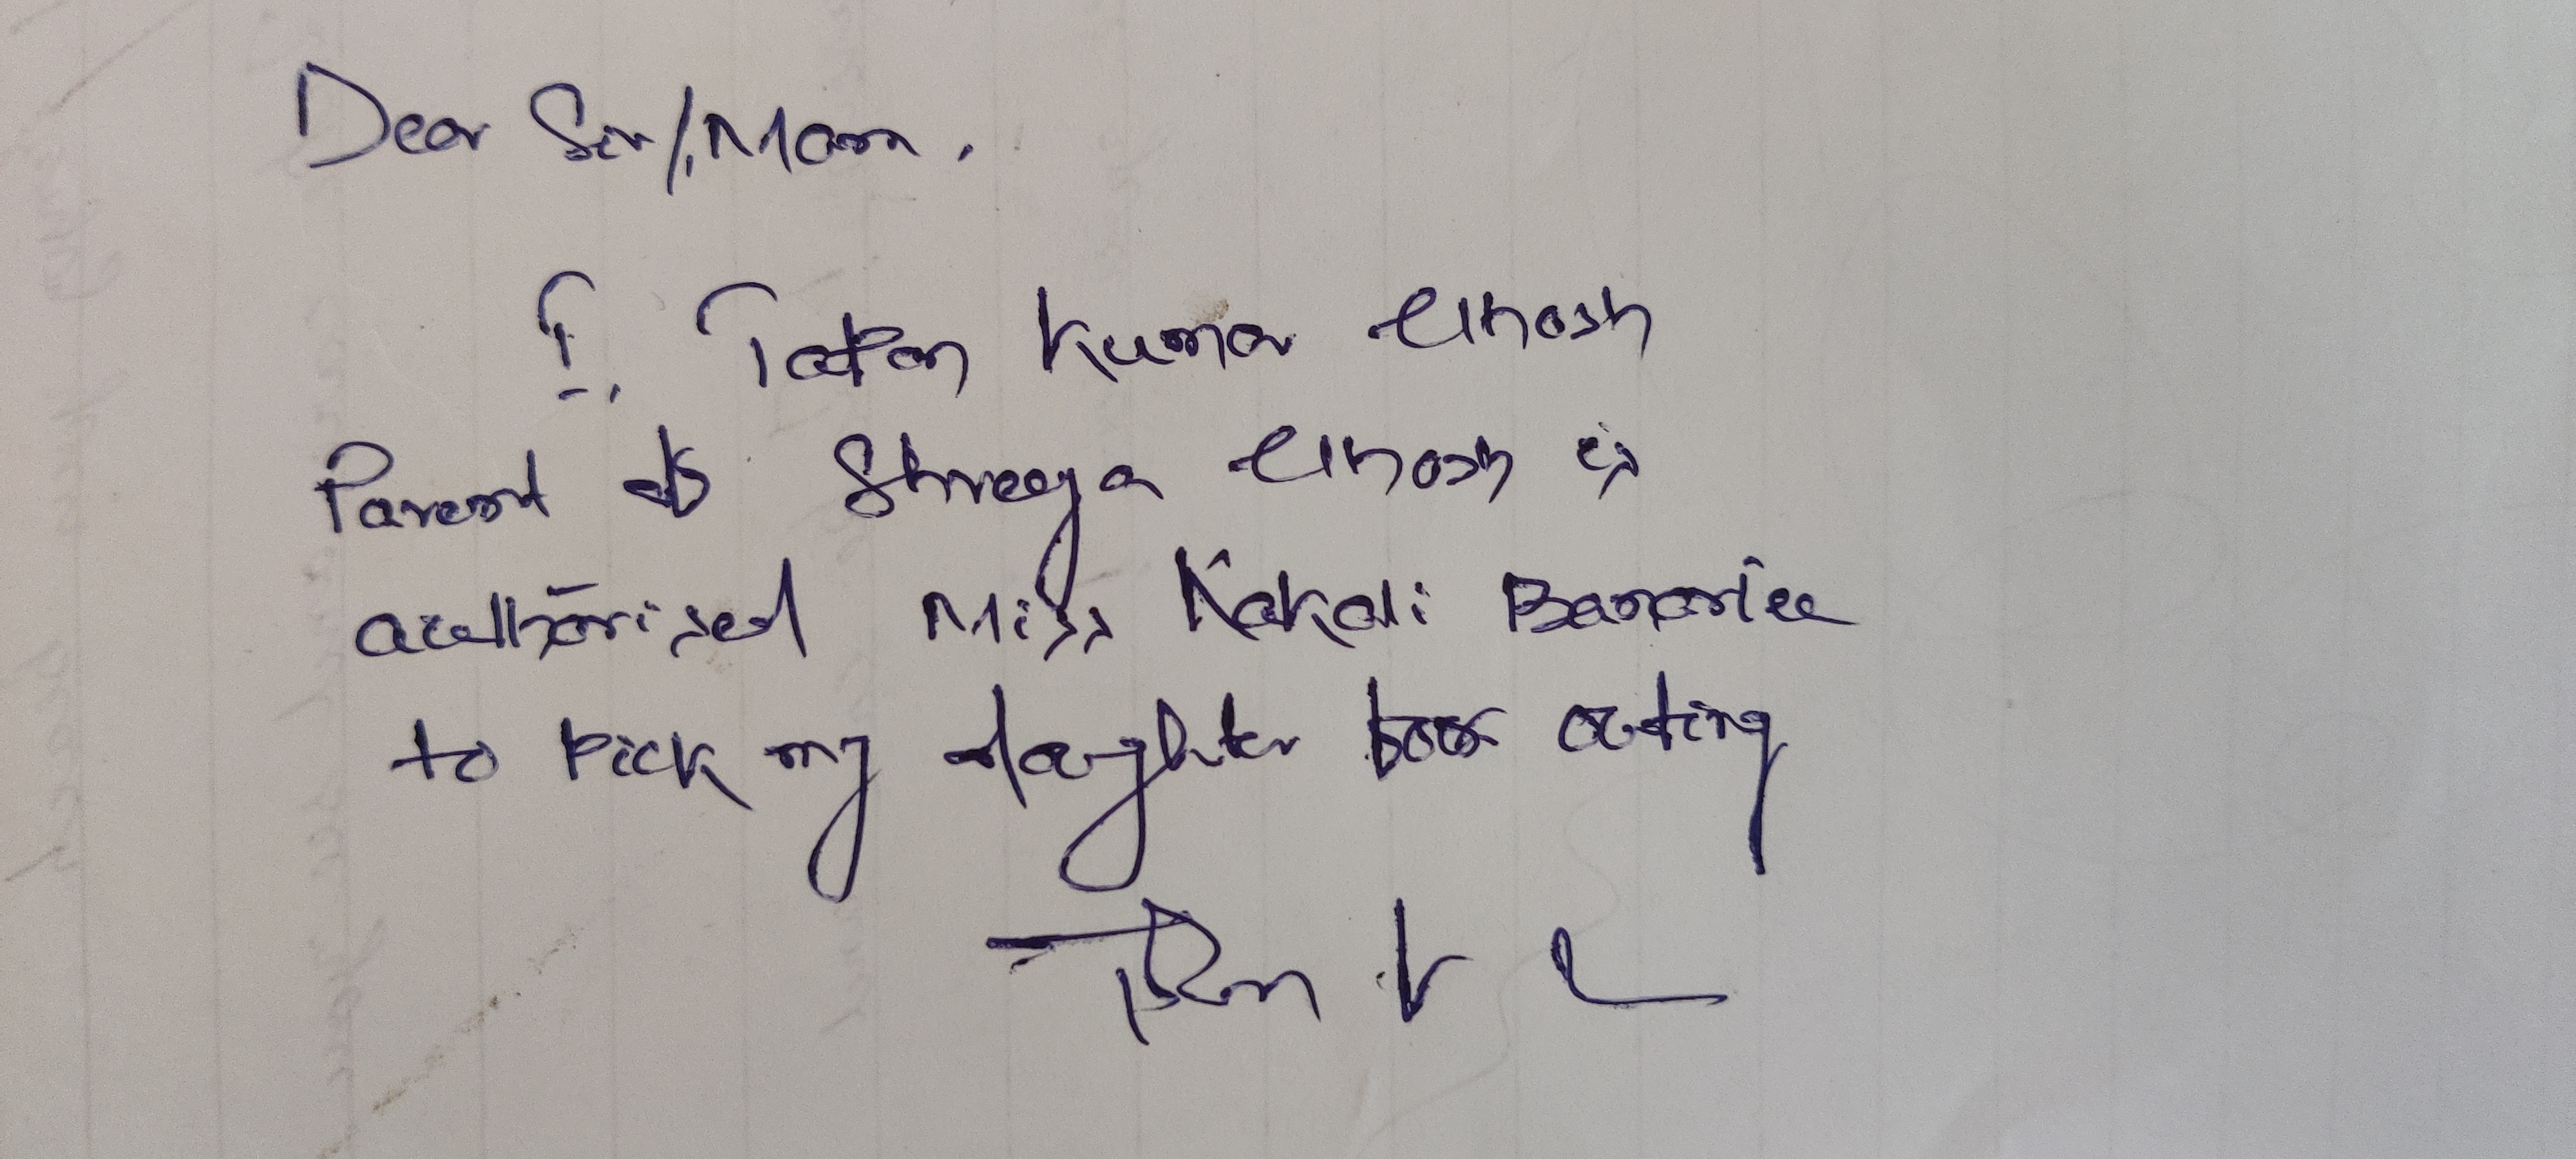 Dear Sir/Mam,
I, Tapan Kumar Ghosh
Parent of Shreya Ghosh is
authorised Miss Kakali Banarjee
to Pick my daughter for outing